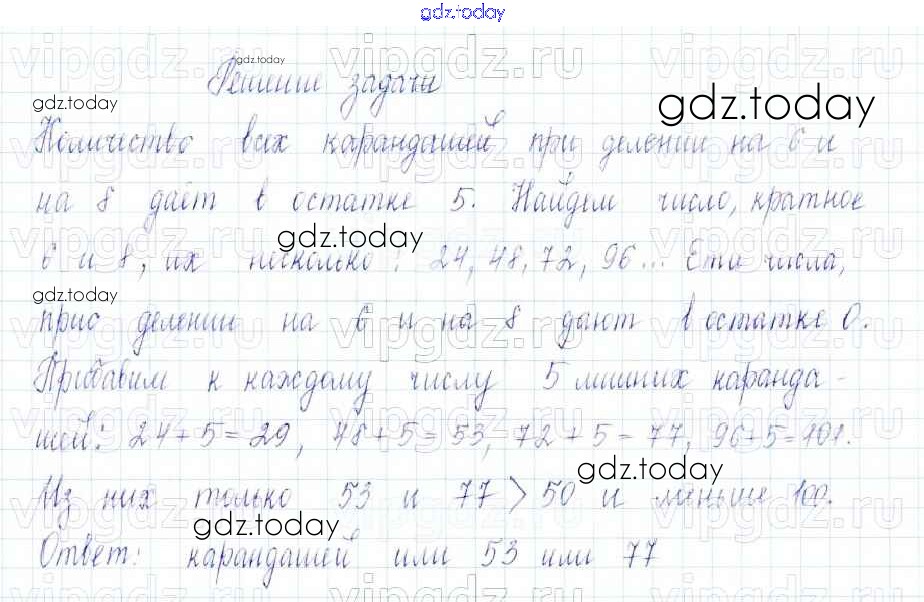 gdz.today
Решение задачи
Количество всех карандашей при делении на 6 и
на 8 даёт в остатке 5. Найдем число, кратное
6 и 8, их несколько: 24, 48, 72, 96... Эти числа,
при делении на 6 и на 8 дают в остатке 0.
Прибавим к каждому числу 5 лишних каранда-
шей: 24+5=29, 48+5=53, 72+5=77, 96+5=101.
Из них только 53 и 77 > 50 и меньше 100.
Ответ: карандашей или 53 или 77
gdz.today
gdz.today
gdz.today
gdz.today
gdz.today
gdz.today
gdz.today
vipgdz.ru